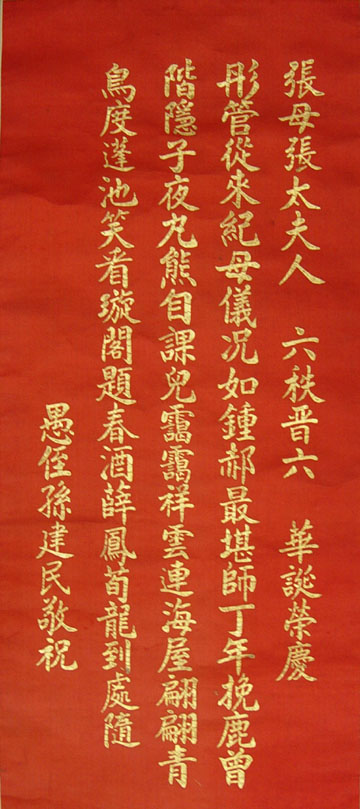 張母張太夫人 六秩晋六 華誕榮慶
彤管從來紀母儀況如鍾郝最堪師丁年挽鹿曾
階隱子夜丸熊自課兒靄靄祥雲連海屋翩翩青
鳥度蓬池笑看璇閣題春酒薛鳳荀龍到處隨
愚侄孫建民敬祝